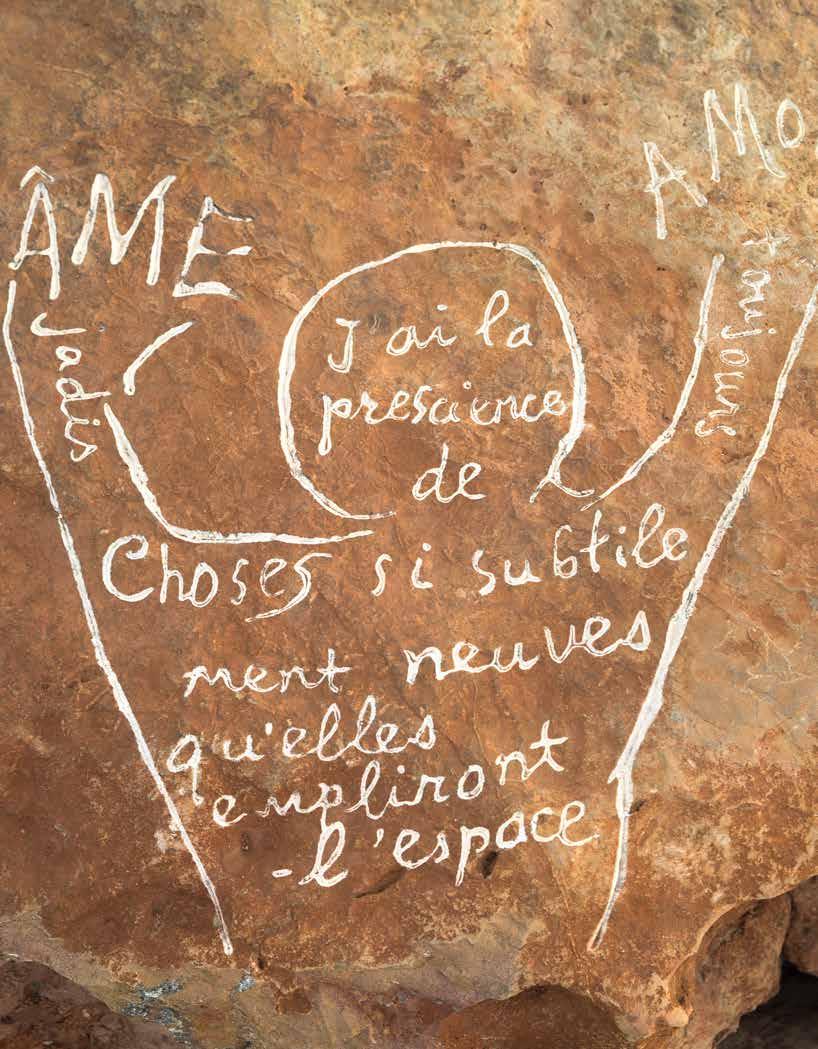 ÂME
AMO
jadis
toujours
J'ai la
prescience
de
Choses si subtile
ment neuves
qu'elles
empliront
-l'espace